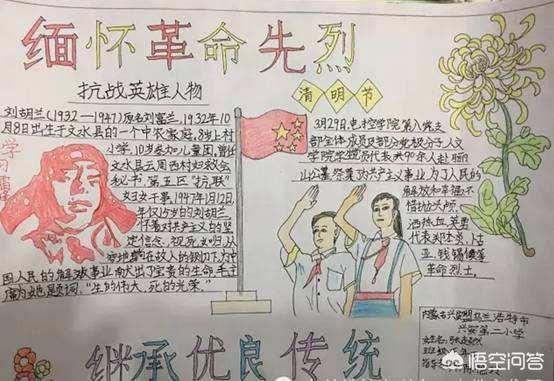 缅怀革命先烈
抗战英雄人物
刘胡兰(1932—1947)原名刘富兰,1932年10
月8日出生于文水县的一个中农家庭,8岁上村
小学,10岁参加儿童团,曾任
文水县云周西村妇救会
秘书,第五区"抗联"
妇女干事,1947年1月12日,
年仅15岁的刘胡兰,
怀着对共产主义的坚
定信念,视死如归,从
容地躺在敌人的铡刀下,为中
国人民的解放事业献出了宝贵的生命,毛主
席为她题词:"生的伟大,死的光荣。"
学习雷
清明节
3月29日,电控学院第八党支
部全体党员及部分党积分子,人文
学院学代表共90余人赴
山公墓祭奠为共产主义事业,为了人民的
解放和幸福不
惜抛头颅、
洒热血,英勇
革命烈士。
内蒙古兴安盟乌兰浩特市
兴安第二小学
学生姓名:
继承优良传统
悟空问答